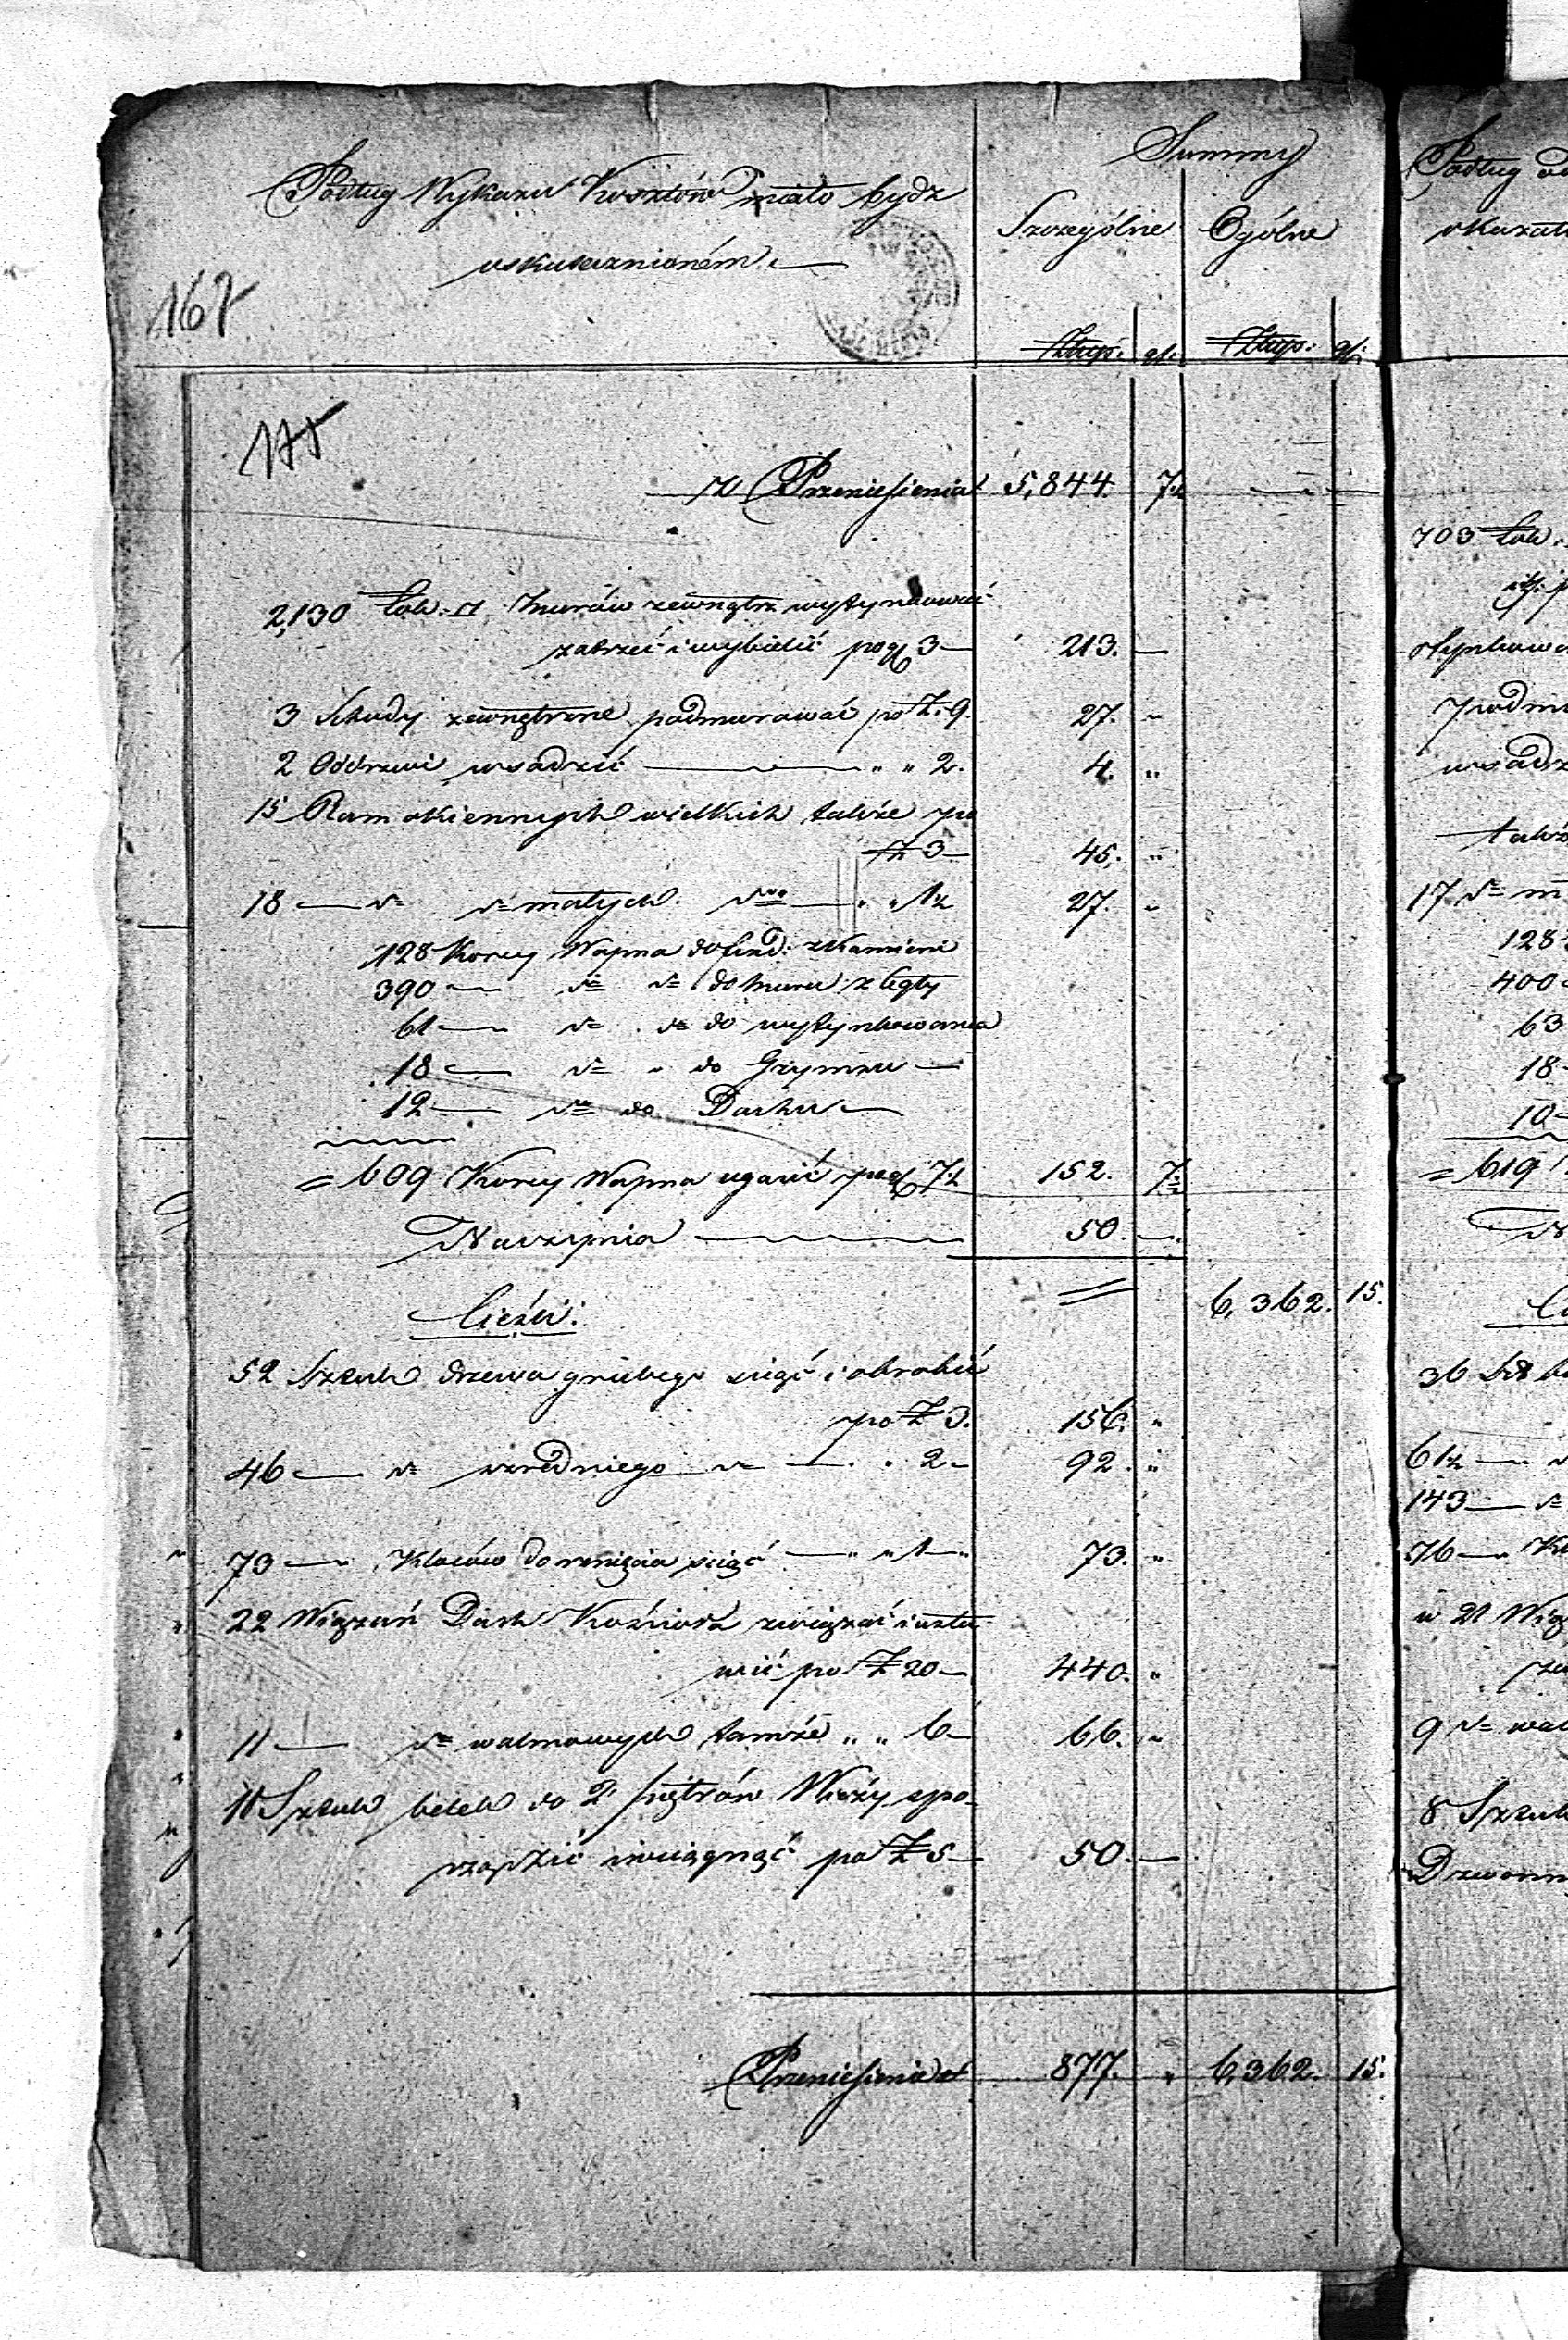 Podług Wykazu Kosztów miało bydz
uskutecznioném
Summy
Szczególne Ogólne
Złłup. gr. Złłup. gr.
167
175
Z Przeniesienia 5,844. 7½
2,130 Łok. □ Murów zewnątrz wytynkować
zatrzeć i wybielić po g 3 — 213. —
3 Schody zewnętrzne podmurować po Zł. 9. 27. "
2 Odrzwi wsadzić — " " 2. 4. "
15 Ram okiennych wielkich także po
Zł 3 — 45. "
18 — dº dº małych dº — " " 1½ 27. "
128 Korcy Wapna do fund: z Kamieni
390 — dº dº do Muru z Cegły
61 — dº dº do wytynkowania
18 — dº " do Gzymsu —
12 — dº do Dachu —
= 609 Korcy Wapna ugasić po g 7½ 152. 7½
Naczynia — 50. —
6,362. 15.
Cieśla:
52 Sztuk drzewa grubego ściąć i obrobić
po Zł 3. 156. "
46 — dº szredniego dº — " " 2 — 92. "
73 — Kloców do rznięcia ściąć — " " 1 — 73. "
22 Wiązań Dach Kościoła związać i usta
wić po Zł 20 — 440. "
11 — dº walmowych tamże " " 6 — 66. "
10 Sztuk belek do 2 piątrów Wieży spo-
rządzić i wciągnąć po Zł 5 — 50. —
Przeniesienie 877. " 6,362. 15.
Podług
okazało
703 Łok.
otynkowa
7 podmu
wsadz
także
17 dº m
128
400
63
18
10
= 619
N
Ci
36 Szt
61½ — d
143 — dº
76 — Kl
w 21 Wią
9 dº wal
8 Sztuk
Dzwonn